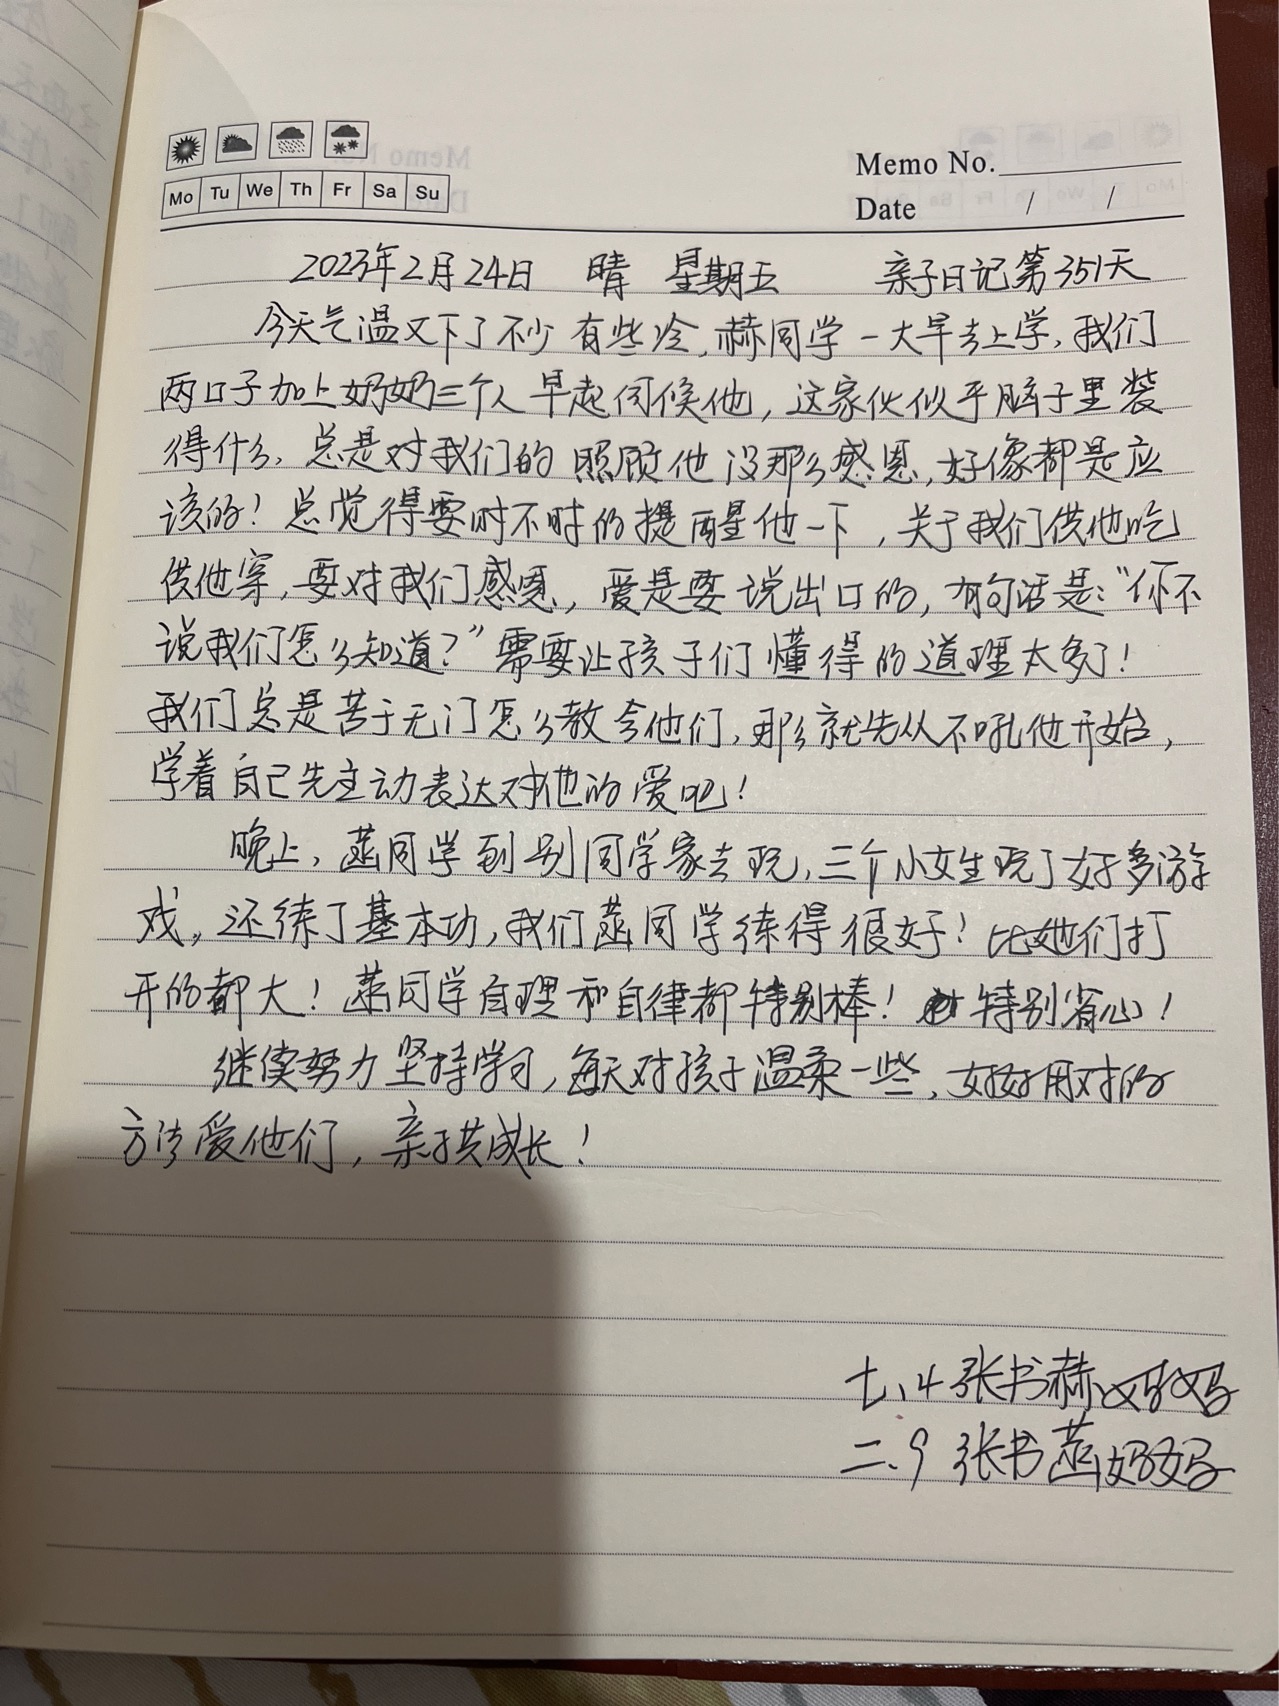 Mo Tu We Th Fr Sa Su
Memo No.
Date / /
2023年2月24日 晴 星期五 亲子日记第351天
今天气温又下了不少 有些冷,赫同学一大早去上学,我们
两口子加上奶奶三个人早起伺候他,这家伙似乎脑子里装
得什么,总是对我们的照顾他没那么感恩,好像都是应
该的!总觉得要时不时的提醒他一下,关于我们供他吃
供他穿,要对我们感恩,爱是要说出口的,有句话是:“你不
说我们怎么知道?”需要让孩子们懂得的道理太多了!
我们总是苦于无门怎么教会他们,那么就先从不吼他开始,
学着自己先主动表达对他的爱吧!
晚上,菡同学到别同学家去玩,三个小女生玩了好多游
戏,还练了基本功,我们菡同学练得很好!比她们打
开的都大!菡同学自理和自律都特别棒!特别省心!
继续努力坚持学习,每天对孩子温柔一些,好好用对的
方法爱他们,亲子共成长!
七、4 张书赫妈妈
二、9 张书菡妈妈